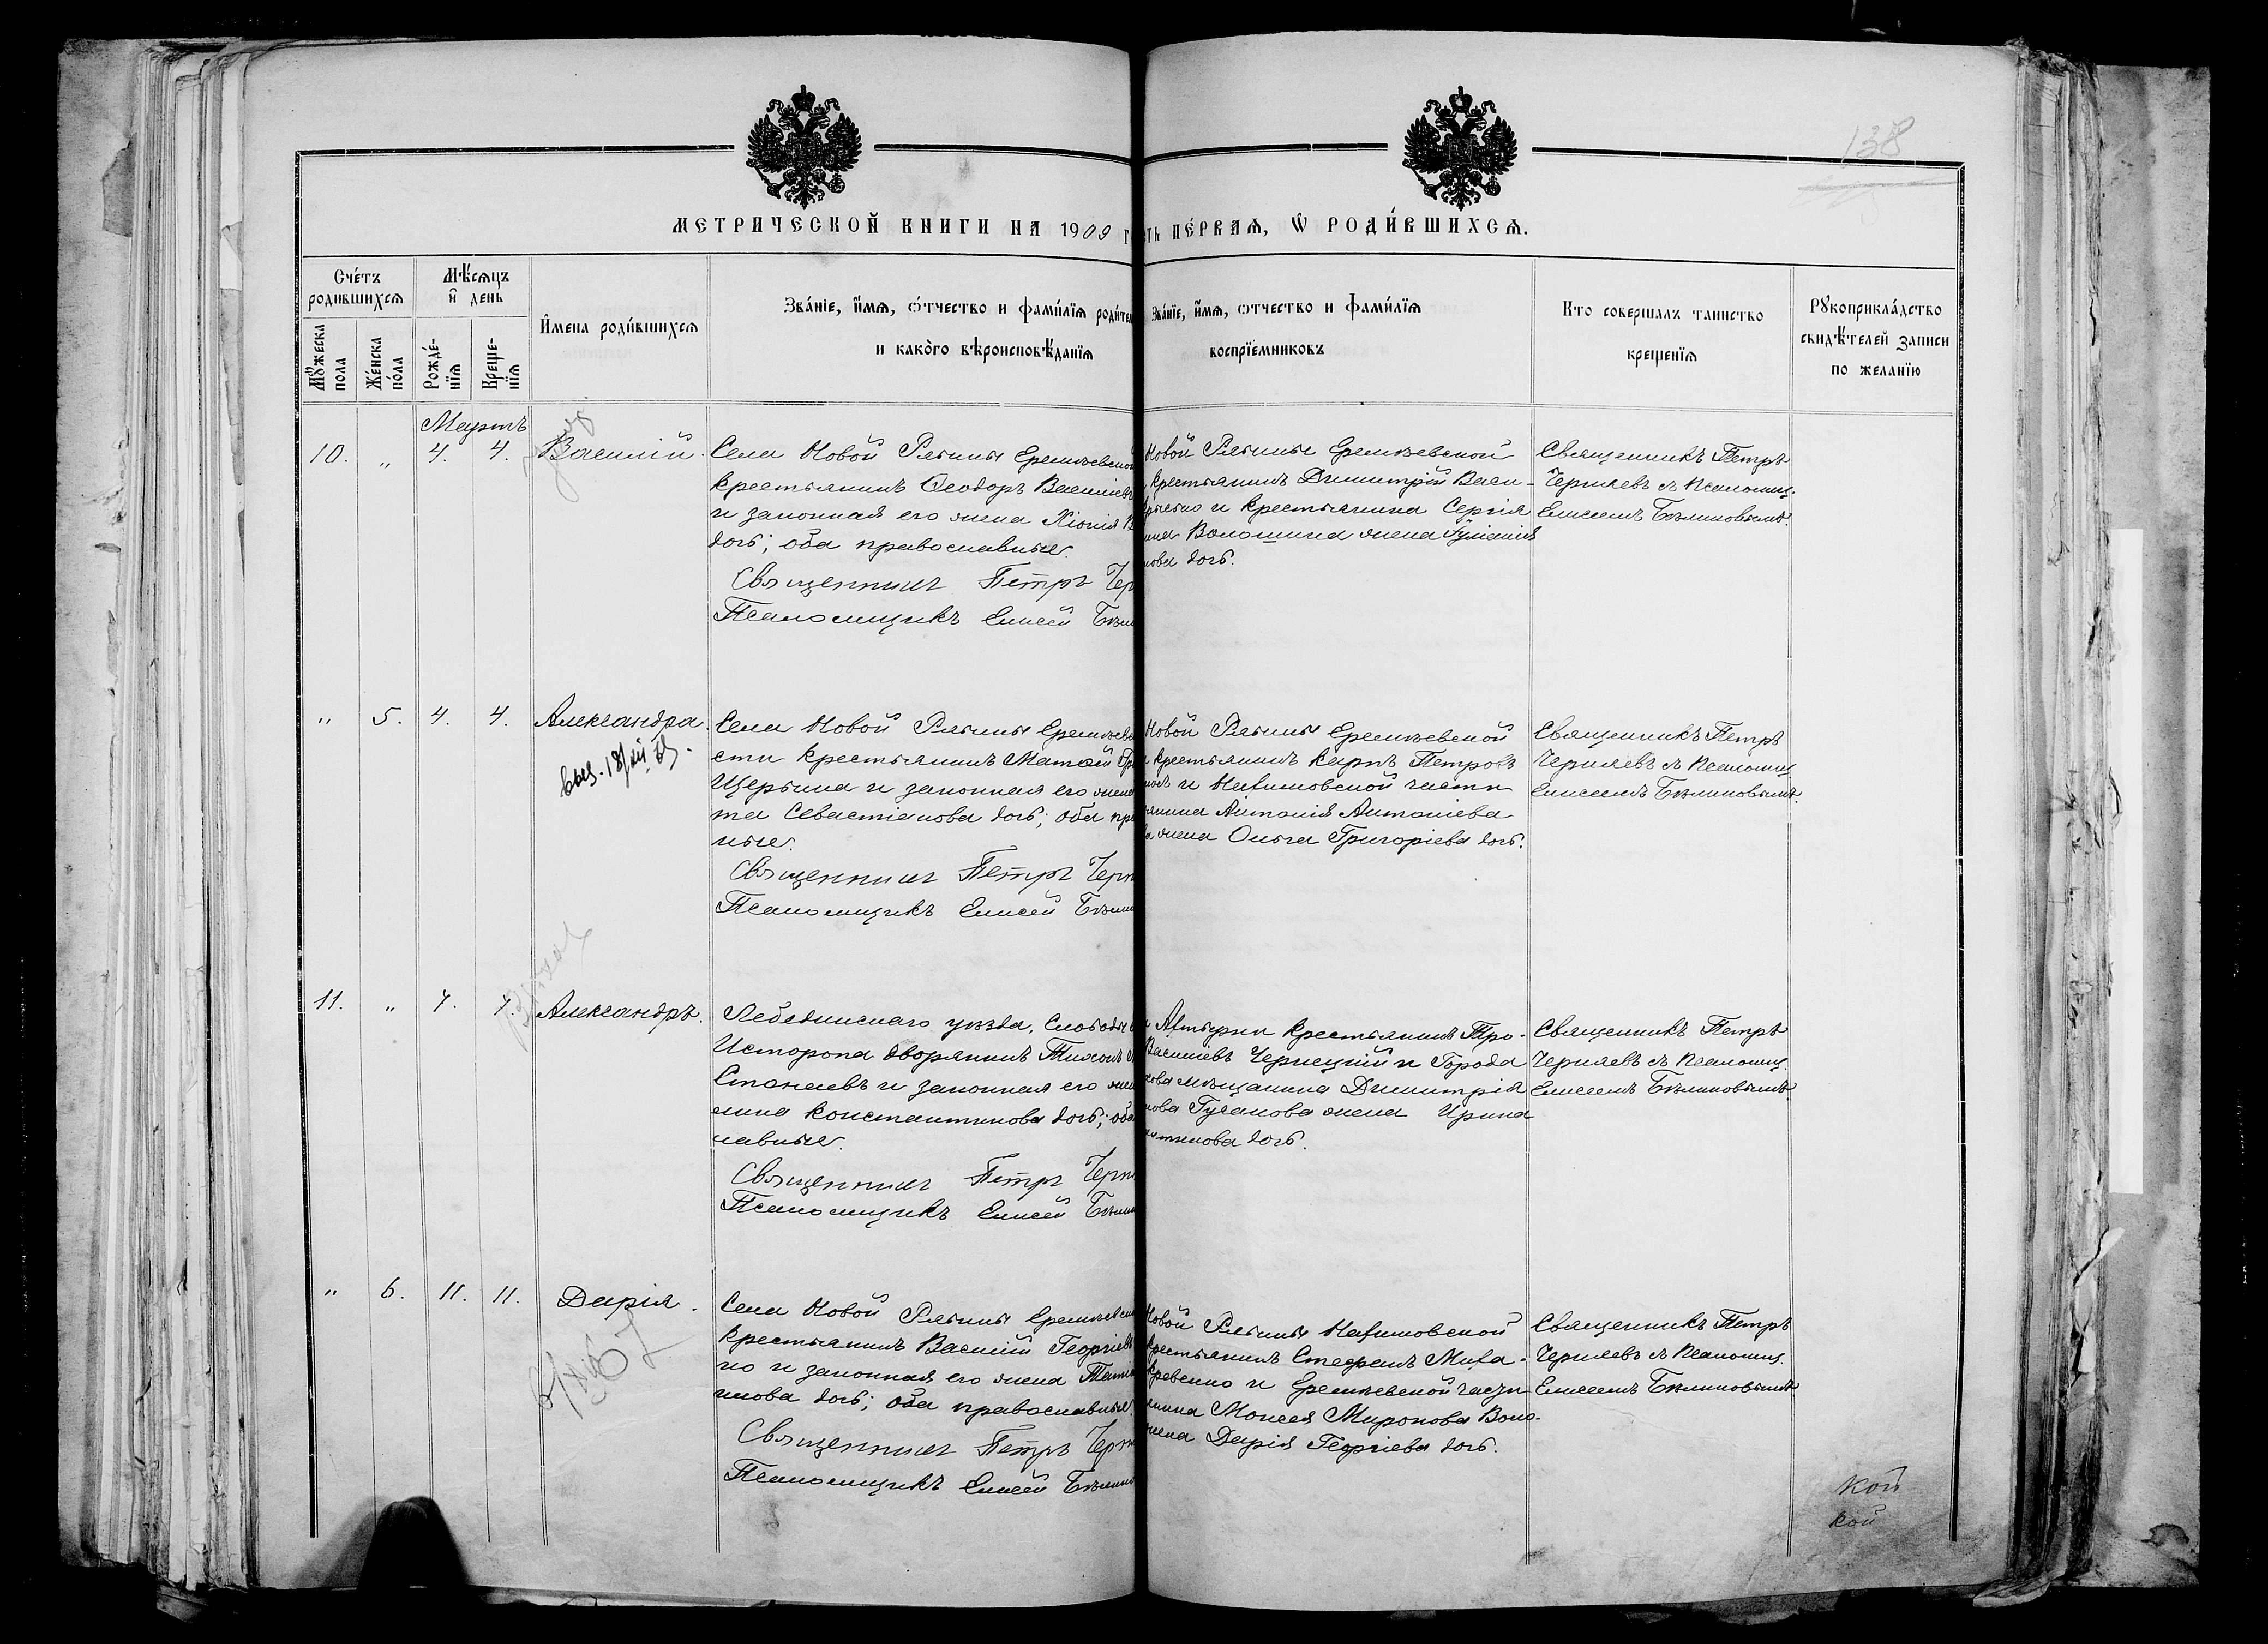 138
МЕТРИЧЕСКОЙ КНИГИ НА 1909 г
сть ПЕ́РВАЯ, Ѡ҆ РОДИ́ВШИХСЯ.
Сче́тъ родившихся
Мѣ́сяцъ и҆ день
Мꙋ́жеска пола
Же́нска по́ла
Рожде́-нїя
Креще-нїя
И҆мена роди́вшихся
Зва́нїе, и҆́мя, ѻ҆́тчество и фами́лїя роди́тел
и како́го вѣроисповѣ́данїя
Зва́нїе, и҆́мя, ѻтчество и фами́лїя
воспрїе́мниковъ
Кто совершалъ таинство
крещенїя
Рꙋкоприкла́дство
свидѣ́телей записи
по желанїю
Мартъ
10. „ 4. 4. Василій.
Села Новой Рябины Еремѣевской
крестьянинъ Ѳеодоръ Васильев
и законная его жена Хіонія В
дочь; оба православные.
Священник Петръ Чер
Псаломщикъ Елисей Бѣли
Новой Рябины Еремѣевской
крестьянинъ Димитрій Васи-
и крестьянина Сергія
Волошина жена
нова дочь.
Священникъ Петръ
Черняевъ съ Псаломщ.
Елисеемъ Бѣлиновымъ.
„ 5. 4. 4. Александра.
Села Новой Рябины Еремѣев
сти крестьянинъ Матѳей Гр
Щербина и законная его жена
та Севастіанова дочь; оба пра
ные.
Священник Петръ Черн
Псаломщикъ Елисей Бѣлин
Новой Рябины Еремѣевской
крестьянинъ Карпъ Петровъ
и части
Антонія Антоніева
жена Ольга Григоріева дочь.
Священникъ Петръ
Черняевъ съ Псаломщ.
Елисеемъ Бѣлиновымъ.
11. „ 7. 7. Александръ.
Лебединскаго уѣзда, Слободы
Исторопа дворянинъ Тихонъ
и законная его жен
Константинова дочь; оба
лавные.
Священник Петръ Черн
Псаломщикъ Елисей Бѣлин
крестьянинъ Тро-
Васильевъ Чернецкій и Города
кова мѣщанина Димитрія
нова Гусакова жена Ирина
нтинова дочь.
Священникъ Петръ
Черняевъ съ Псаломщ.
Елисеемъ Бѣлиновымъ.
„ 6. 11. 11. Дарія.
Села Новой Рябины Еремѣевск
крестьянинъ Василій Георгіев
но и законная его жена Татіа
мова дочь; оба православные.
Священник Петръ Черн
Псаломщикъ Елисей Бѣлин
Новой Рябины
крестьянинъ Стефанъ Миха-
и Еремѣевской части
Моисея Миронова Воло-
жена Дарія Георгіева дочь.
Священникъ Петръ
Черняевъ съ Псаломщ.
Елисеемъ Бѣлиновымъ.
кой
кой